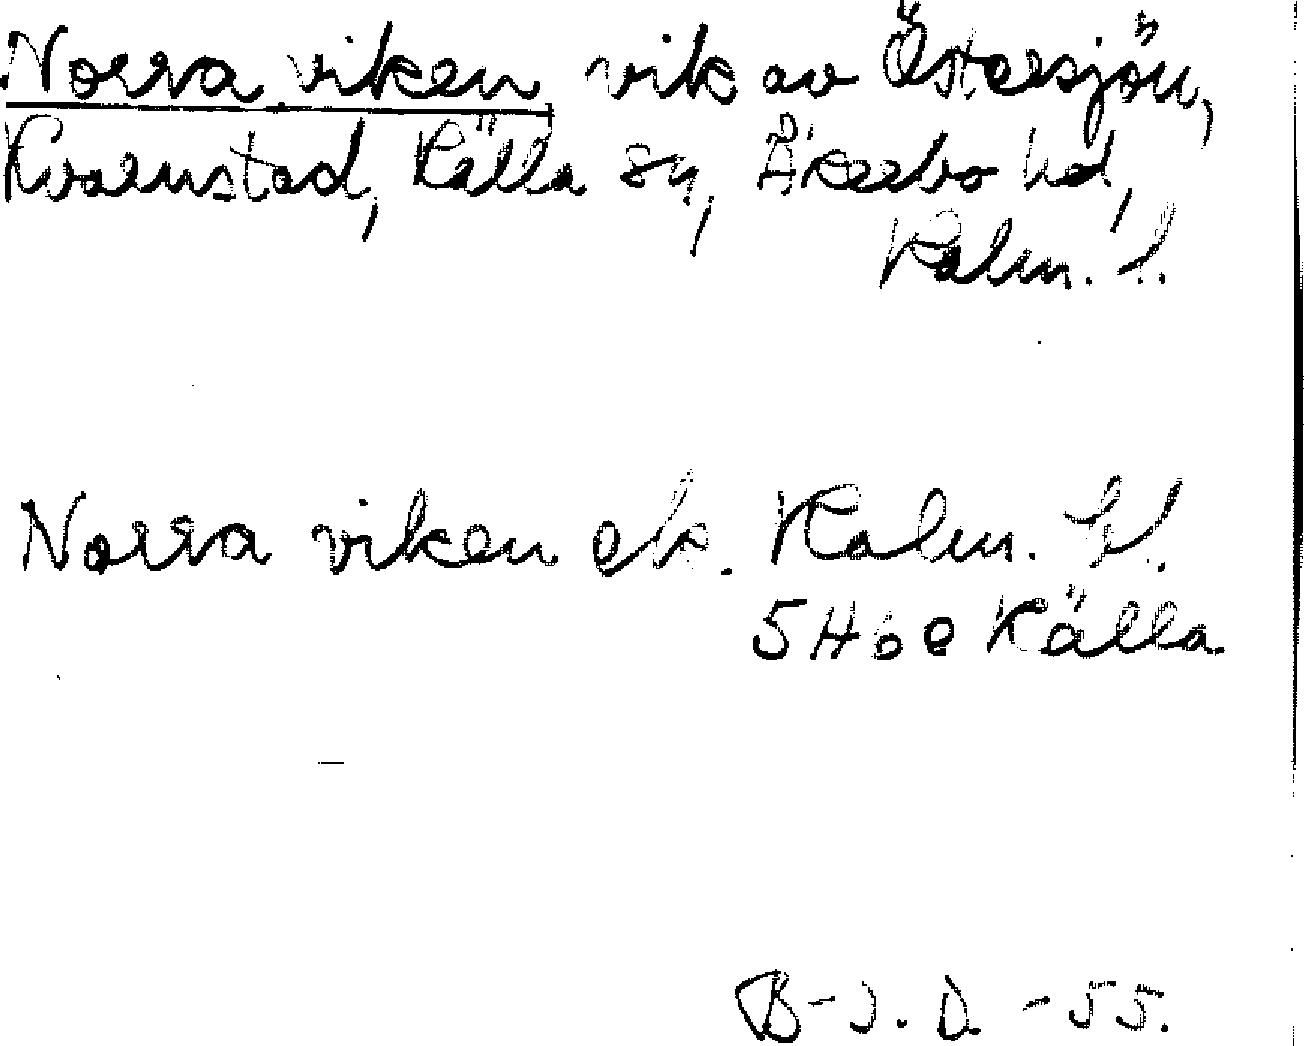 Norra viken vik av Östersjön,
Kvarnstad, Källa sn, Åkerbo hd,
Kalm. l.
Norra viken ek. Kalm. l.
5H6e Källa
B-J.D. -55.